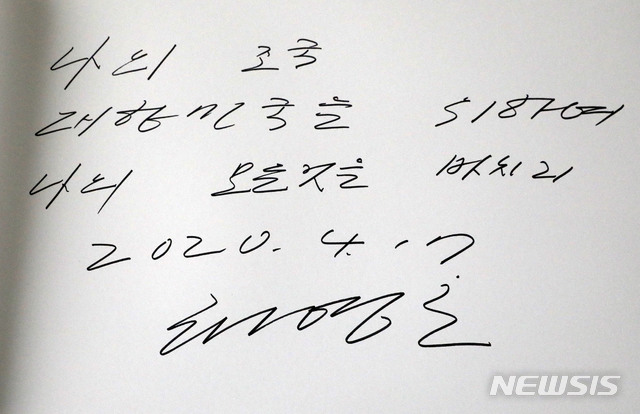 나의 조국
대한민국을 위하여
나의 모든것을 바치리
2020. 4. 17
태영호
NEWSIS